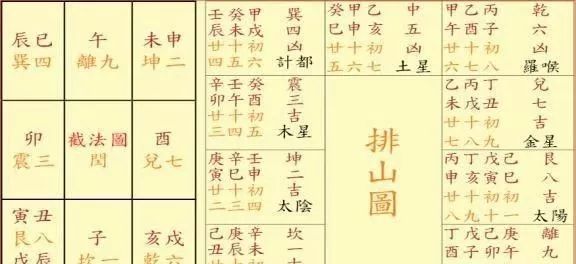 辰巳
巽四
午
離九
未申
坤二
卯
震三
截法圖
閏
酉
兌七
寅丑
艮八
戊辰
子
坎一
亥戌
乾六
壬癸甲巽
辰未戌四
廿十初凶
四五六計都
癸甲乙中
巳申亥五
廿十初凶
五六七土星
甲乙丙乾
午酉子六
廿十初凶
六七八羅喉
辛壬癸震
卯午酉三
廿十初吉
三四五木星
排山圖
乙丙丁兌
未戌丑七
廿十初吉
七八九金星
庚辛壬坤
寅巳申二
廿十初吉
二三四太陰
丙丁戊己艮
申亥寅巳八
廿十初初吉
八九十一太陽
己庚辛坎
丑辰未一
廿十初吉
丁戊己離
酉子卯九